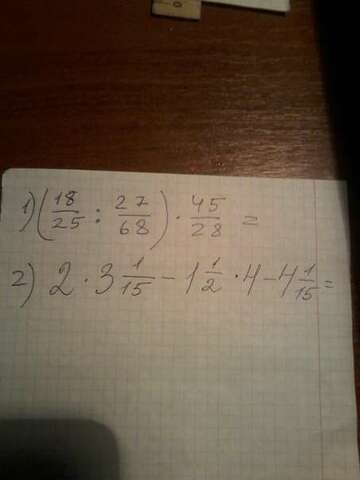 1) (18/25 : 27/68) · 45/28 =
2) 2 · 3 1/15 - 1 1/2 · 4 - 4 1/15 =